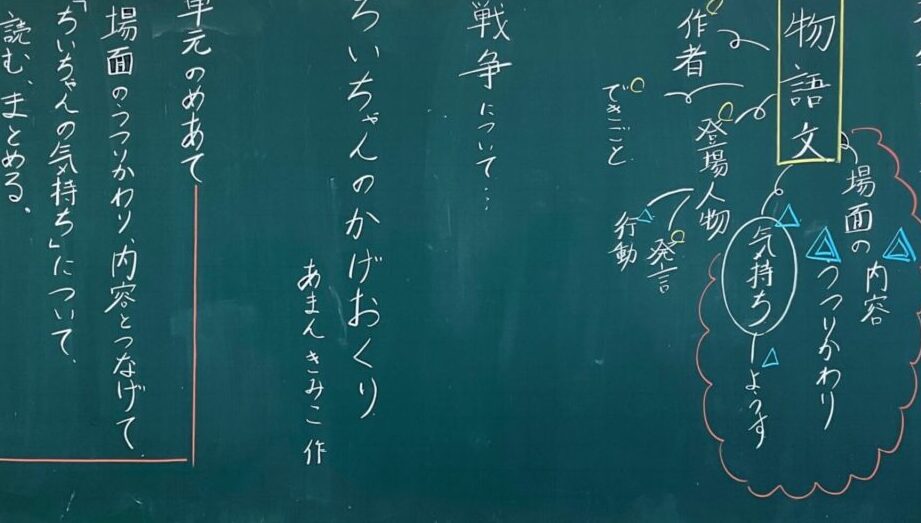 物語文
場面の内容
うつりかわり
気持ち
ようす
作者
登場人物
発言
行動
できごと
戦争について…
ちいちゃんのかげおくり
あまんきみこ 作
単元のめあて
場面のうつりかわり、内容とつなげて、
「ちいちゃんの気持ち」について、
読む、まとめる。